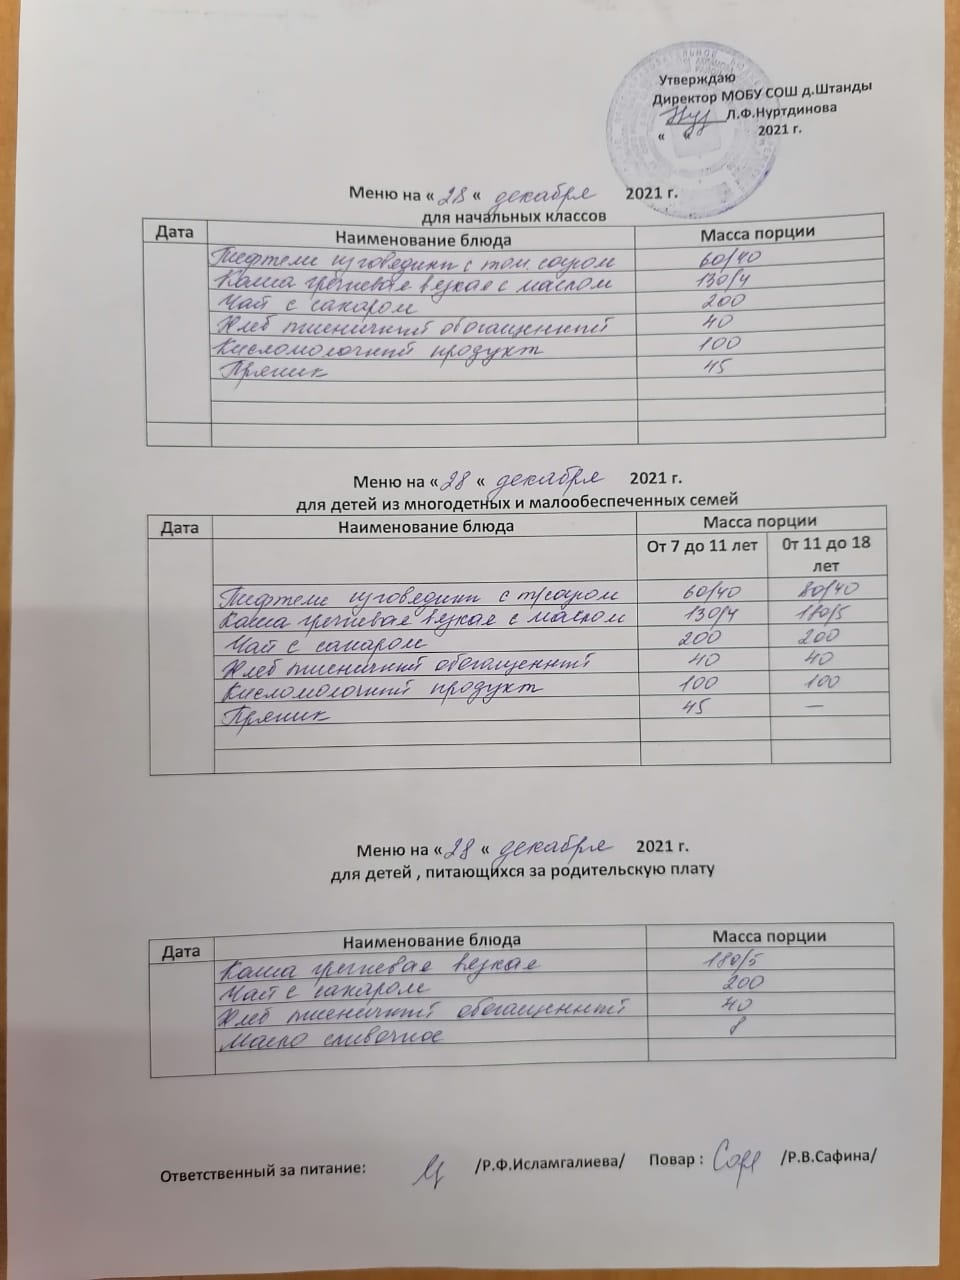 Утверждаю
Директор МОБУ СОШ д.Штанды
Л.Ф.Нуртдинова
« « 2021 г.
Меню на « 28 « декабря 2021 г.
для начальных классов
Дата Наименование блюда Масса порции
Тефтели из говядины с том. соусом 60/40
Каша гречневая вязкая с маслом 130/4
Чай с сахаром 200
Хлеб пшеничный обогащенный 40
Кисломолочный продукт 100
Пряник 45
Меню на « 28 « декабря 2021 г.
для детей из многодетных и малообеспеченных семей
Дата Наименование блюда Масса порции
От 7 до 11 лет От 11 до 18 лет
Тефтели из говядины с т/соусом 60/40 80/40
Каша гречневая вязкая с маслом 130/4 180/5
Чай с сахаром 200 200
Хлеб пшеничный обогащенный 40 40
Кисломолочный продукт 100 100
Пряник 45 —
Меню на « 28 « декабря 2021 г.
для детей , питающихся за родительскую плату
Дата Наименование блюда Масса порции
Каша гречневая вязкая 180/5
Чай с сахаром 200
Хлеб пшеничный обогащенный 40
Масло сливочное 8
Ответственный за питание: /Р.Ф.Исламгалиева/ Повар : /Р.В.Сафина/